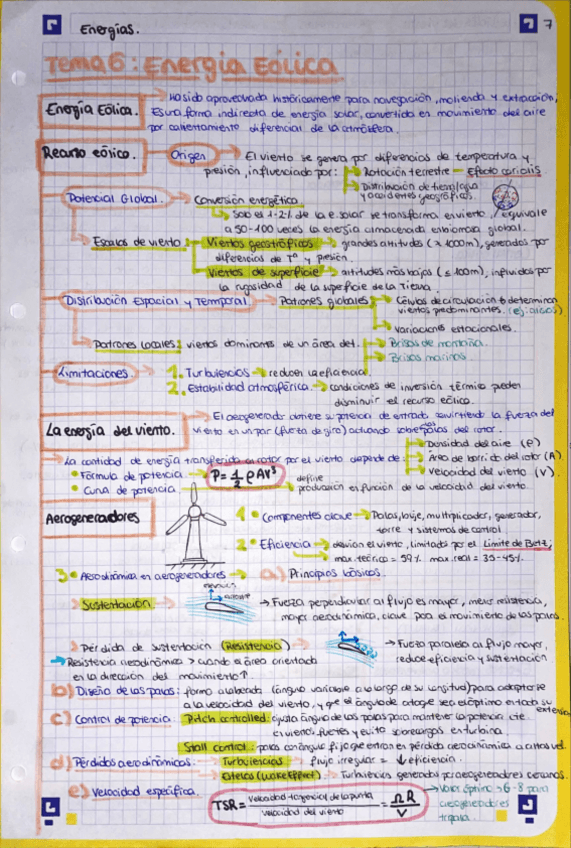 Energías.
7
Tema 6: Energía Eólica
Energía Eólica. → Ha sido aprovechada históricamente para navegación, molienda y extracción.
Es una forma indirecta de energía solar, convertida en movimiento del aire
por calentamiento diferencial de la atmósfera.
Recurso eólico. Origen → El viento se genera por diferencias de temperatura y
presión, influenciado por: → Rotación terrestre → Efecto coriolis
→ Distribución de tierra/agua
y accidentes geográficos.
Potencial Global. → Conversión energética
→ Solo el 1-2% de la e. solar se transforma en viento, equivale
a 50-100 veces la energía almacenada en biomasa global.
→ Escalas de viento: Vientos geostróficos → grandes altitudes (>1000m), generados por
diferencias de Tª y presión.
Vientos de superficie → altitudes más bajas (≤100m), influidos por
la rugosidad de la superficie de la Tierra.
Distribución Espacial y Temporal → Patrones globales → Células de circulación → determinan
vientos predominantes. (ej: alisios)
→ Variaciones estacionales.
→ Patrones locales: vientos dominantes de un área det. → Brisas de montaña.
→ Brisas marinas.
Limitaciones → 1. Turbulencias → reducen la eficiencia.
2. Estabilidad atmosférica. → condiciones de inversión térmica pueden
disminuir el recurso eólico.
La energía del viento. → El aerogenerador obtiene su potencia de entrada convirtiendo la fuerza del
viento en un par (fuerza de giro) actuando sobre palas del rotor.
→ La cantidad de energía transferida al rotor por el viento depende de: → Densidad del aire (ρ)
→ Área de barrido del rotor (A)
→ Velocidad del viento (V).
• Fórmula de potencia → P = 1/2 ρ A V³
• Curva de potencia → define
producción en función de la velocidad del viento.
Aerogeneradores
1. • Componentes clave → Palas, buje, multiplicador, generador,
torre y sistemas de control.
2. • Eficiencia → desvían el viento, limitados por el Límite de Betz;
→ max teórico = 59% max. real = 35-45%.
3. • Aerodinámica en aerogeneradores → a) Principios básicos.
> Sustentación → Fuerza perpendicular al flujo es mayor, menor resistencia,
mayor aerodinámica, clave para el movimiento de las palas.
> Pérdida de sustentación (Resistencia) → Fuerza paralela al flujo mayor,
reduce eficiencia y sustentación
→ Resistencia aerodinámica > cuando el área orientada
en la dirección del movimiento ↑
b) Diseño de las palas: forma alabeada (ángulo variable a lo largo de su longitud) para adaptarse
a la velocidad del viento, y que el ángulo de ataque sea el óptimo en toda su extensión
c) Control de potencia: Pitch controlled: ajusta ángulo de las palas para mantener la potencia cte
en vientos fuertes y evita sobrecargas en turbina.
Stall control: palas con ángulo fijo que entran en pérdida aerodinámica a altas vel.
d) Pérdidas aerodinámicas: → Turbulencias → flujo irregular = ↓ eficiencia.
→ Estelas (Wake Effect) → Turbulencias generadas por aerogeneradores cercanos.
e) Velocidad específica.
TSR = velocidad tangencial de la punta / velocidad del viento = Ω R / V
→ Valor óptimo → 6-8 para
aerogeneradores
tripala.